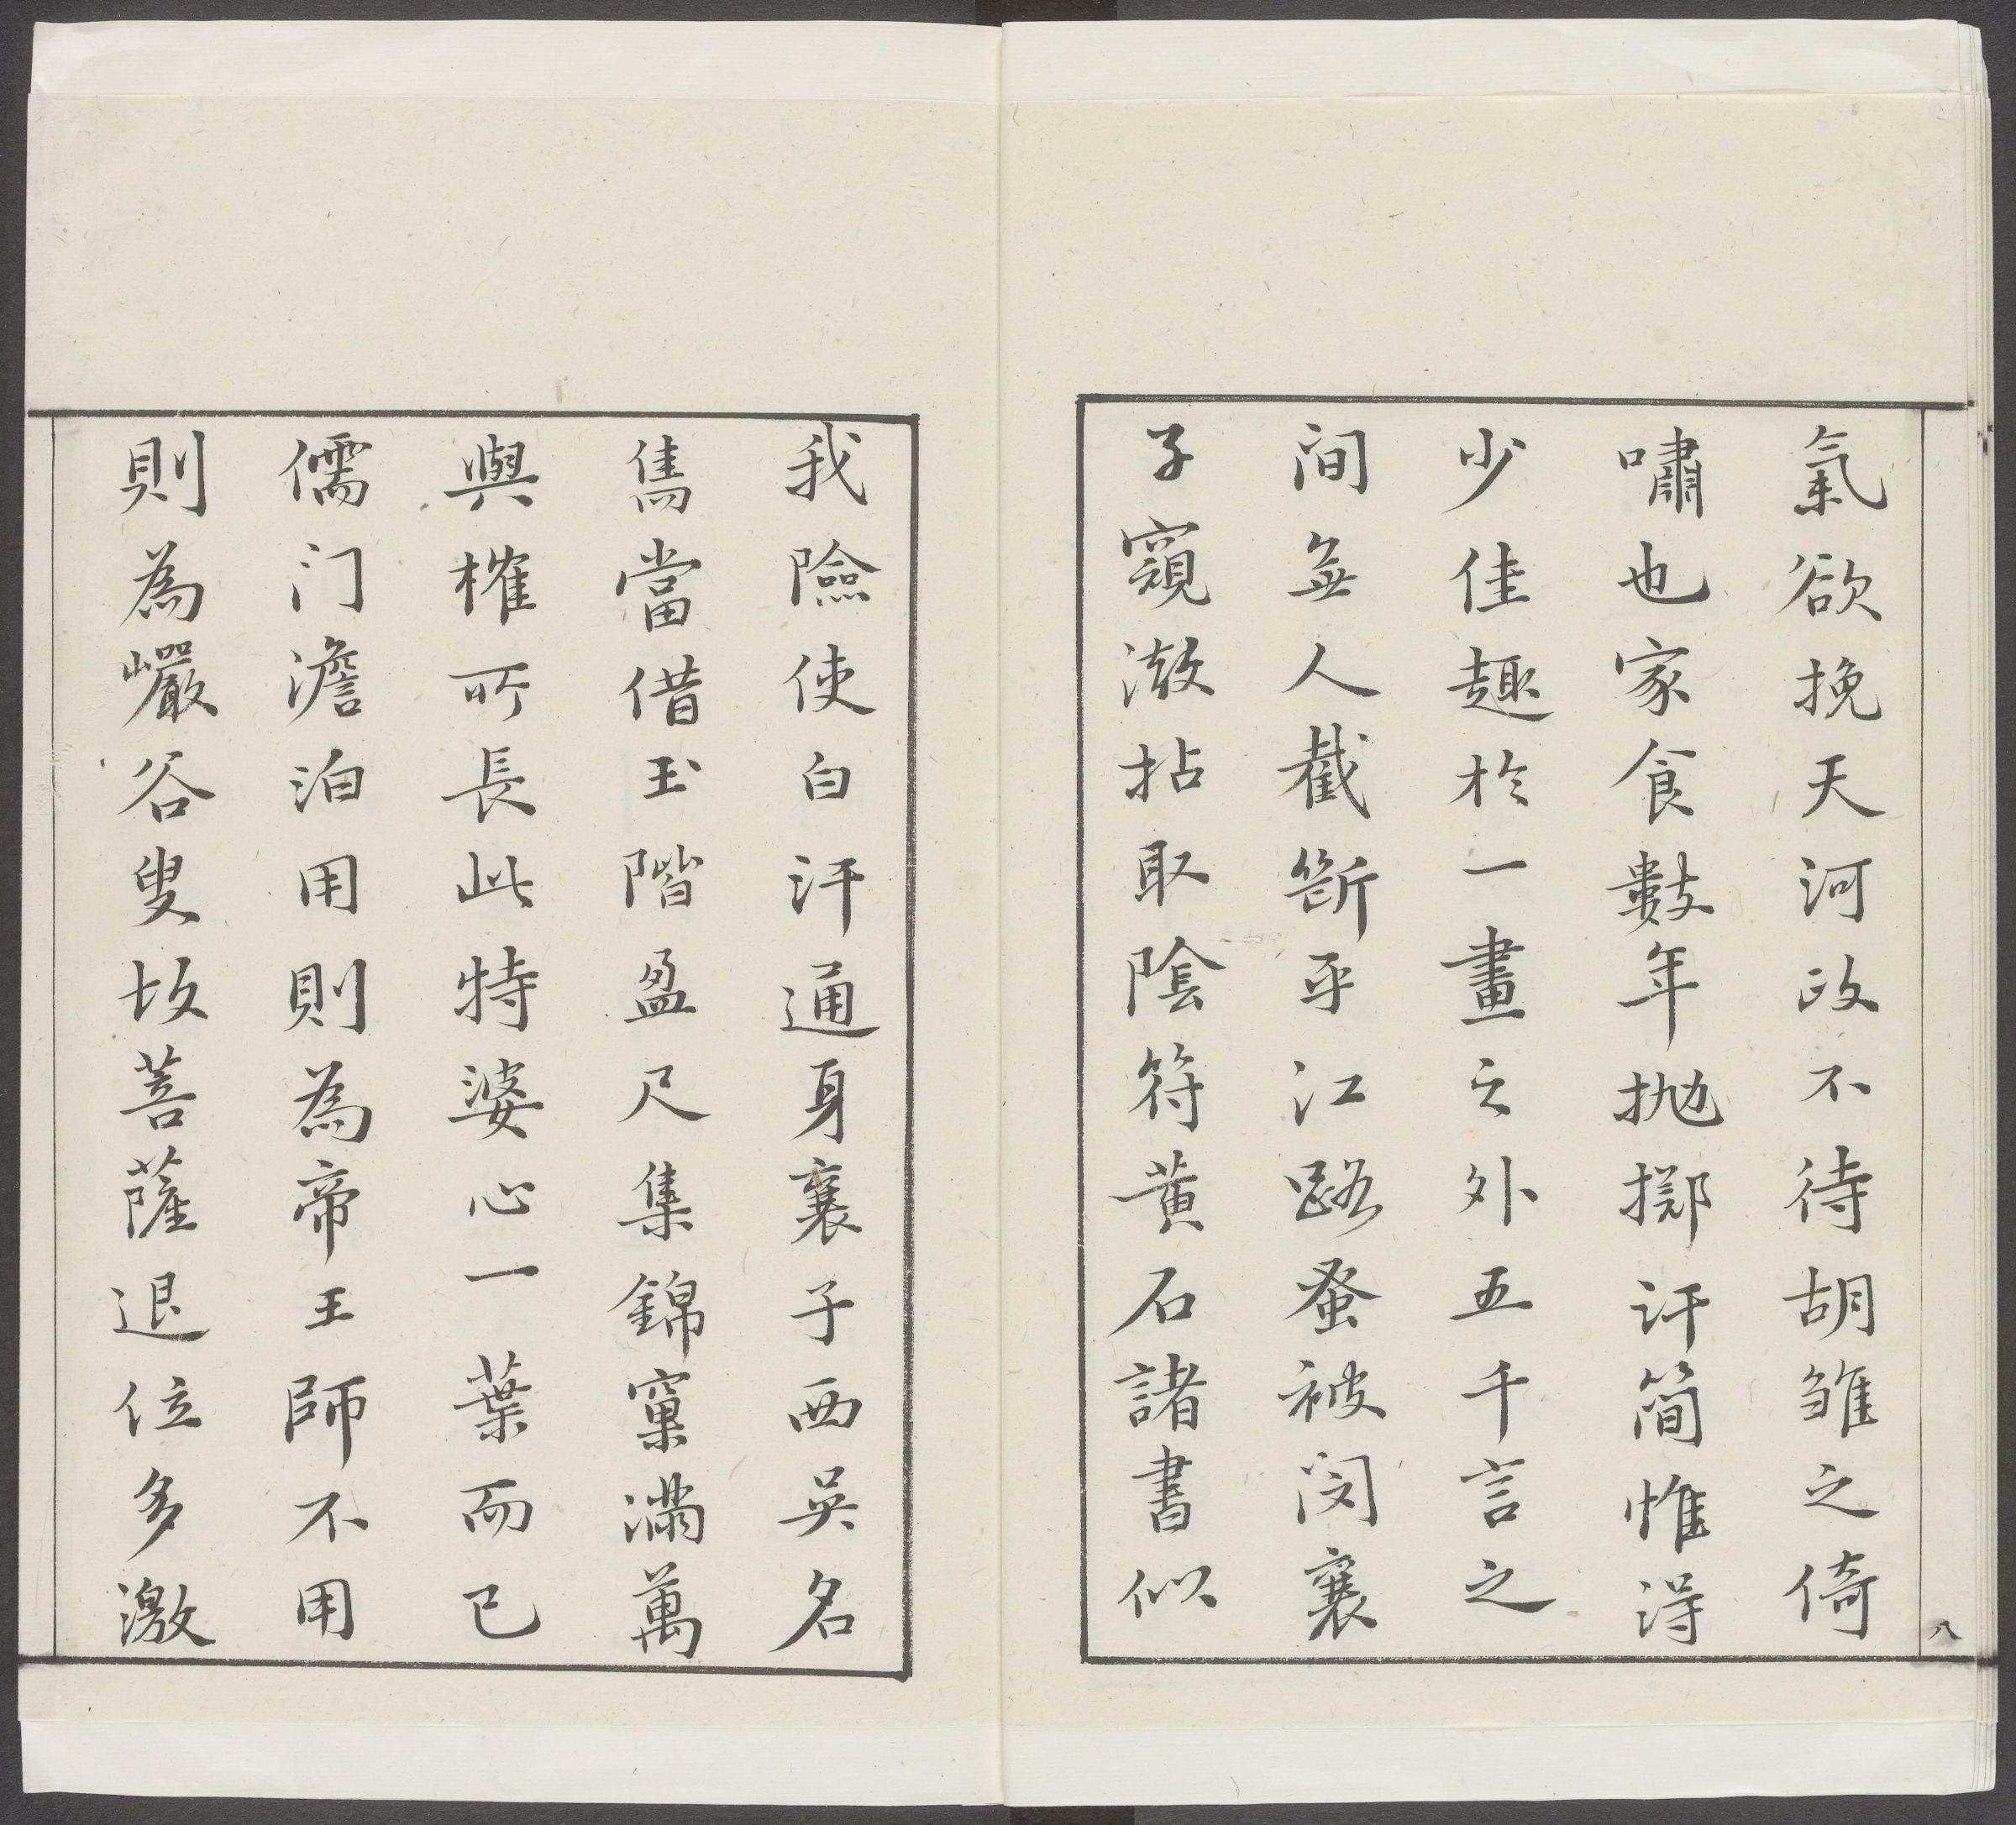 氣欲挽天河政不待胡雏之倚
嘯也家食數年抛擲汗简惟淂
少佳趣於一畫之外五千言之
间無人截斷平江路蚤被闵襄
子窺激拈取陰符黄石諸書似
我險使白汗通身襄子西吴名
雋當借玉階盈尺集錦窠满萬
與榷所長此特婆心一葉而已
儒门澹泊用則為帝王師不用
則為巖谷叟故菩薩退位多激
八